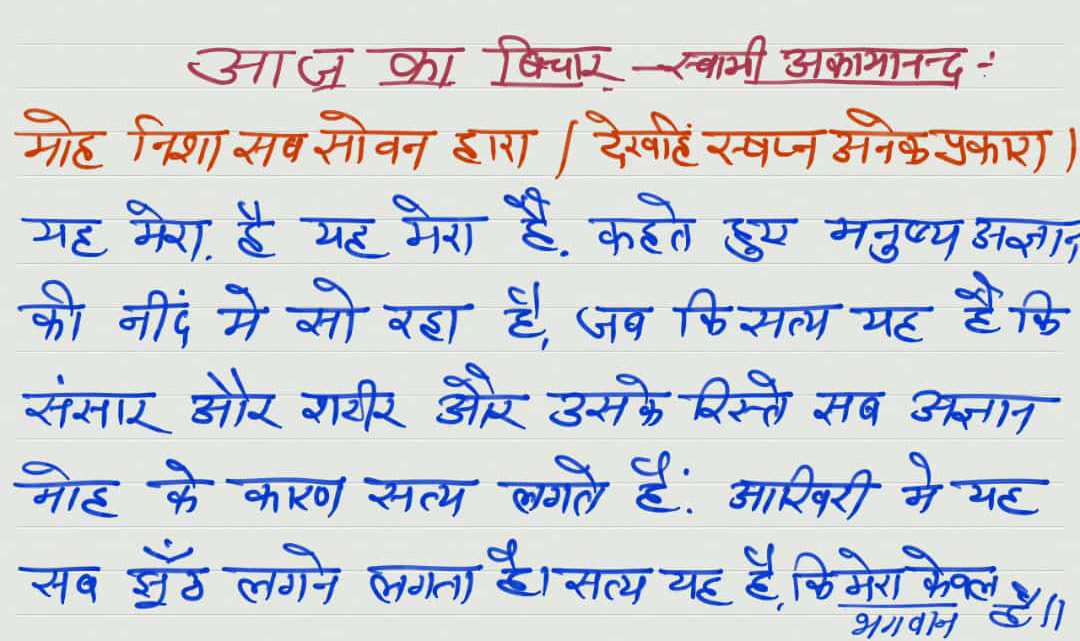 आज का विचार — स्वामी अकामानन्द :-
मोह निशा सब सोवन हारा / देखहिं स्वप्न अनेक प्रकारा /
यह मेरा. है यह मेरा है. कहते हुए मनुष्य अज्ञान
की नींद मे सो रहा है, जब कि सत्य यह है कि
संसार और शरीर और उसके रिस्ते सब अज्ञान
मोह के कारण सत्य लगते हैं. आखिरी मे यह
सब झूँठ लगने लगता है। सत्य यह है, कि मेरा केवल
भगवान है //